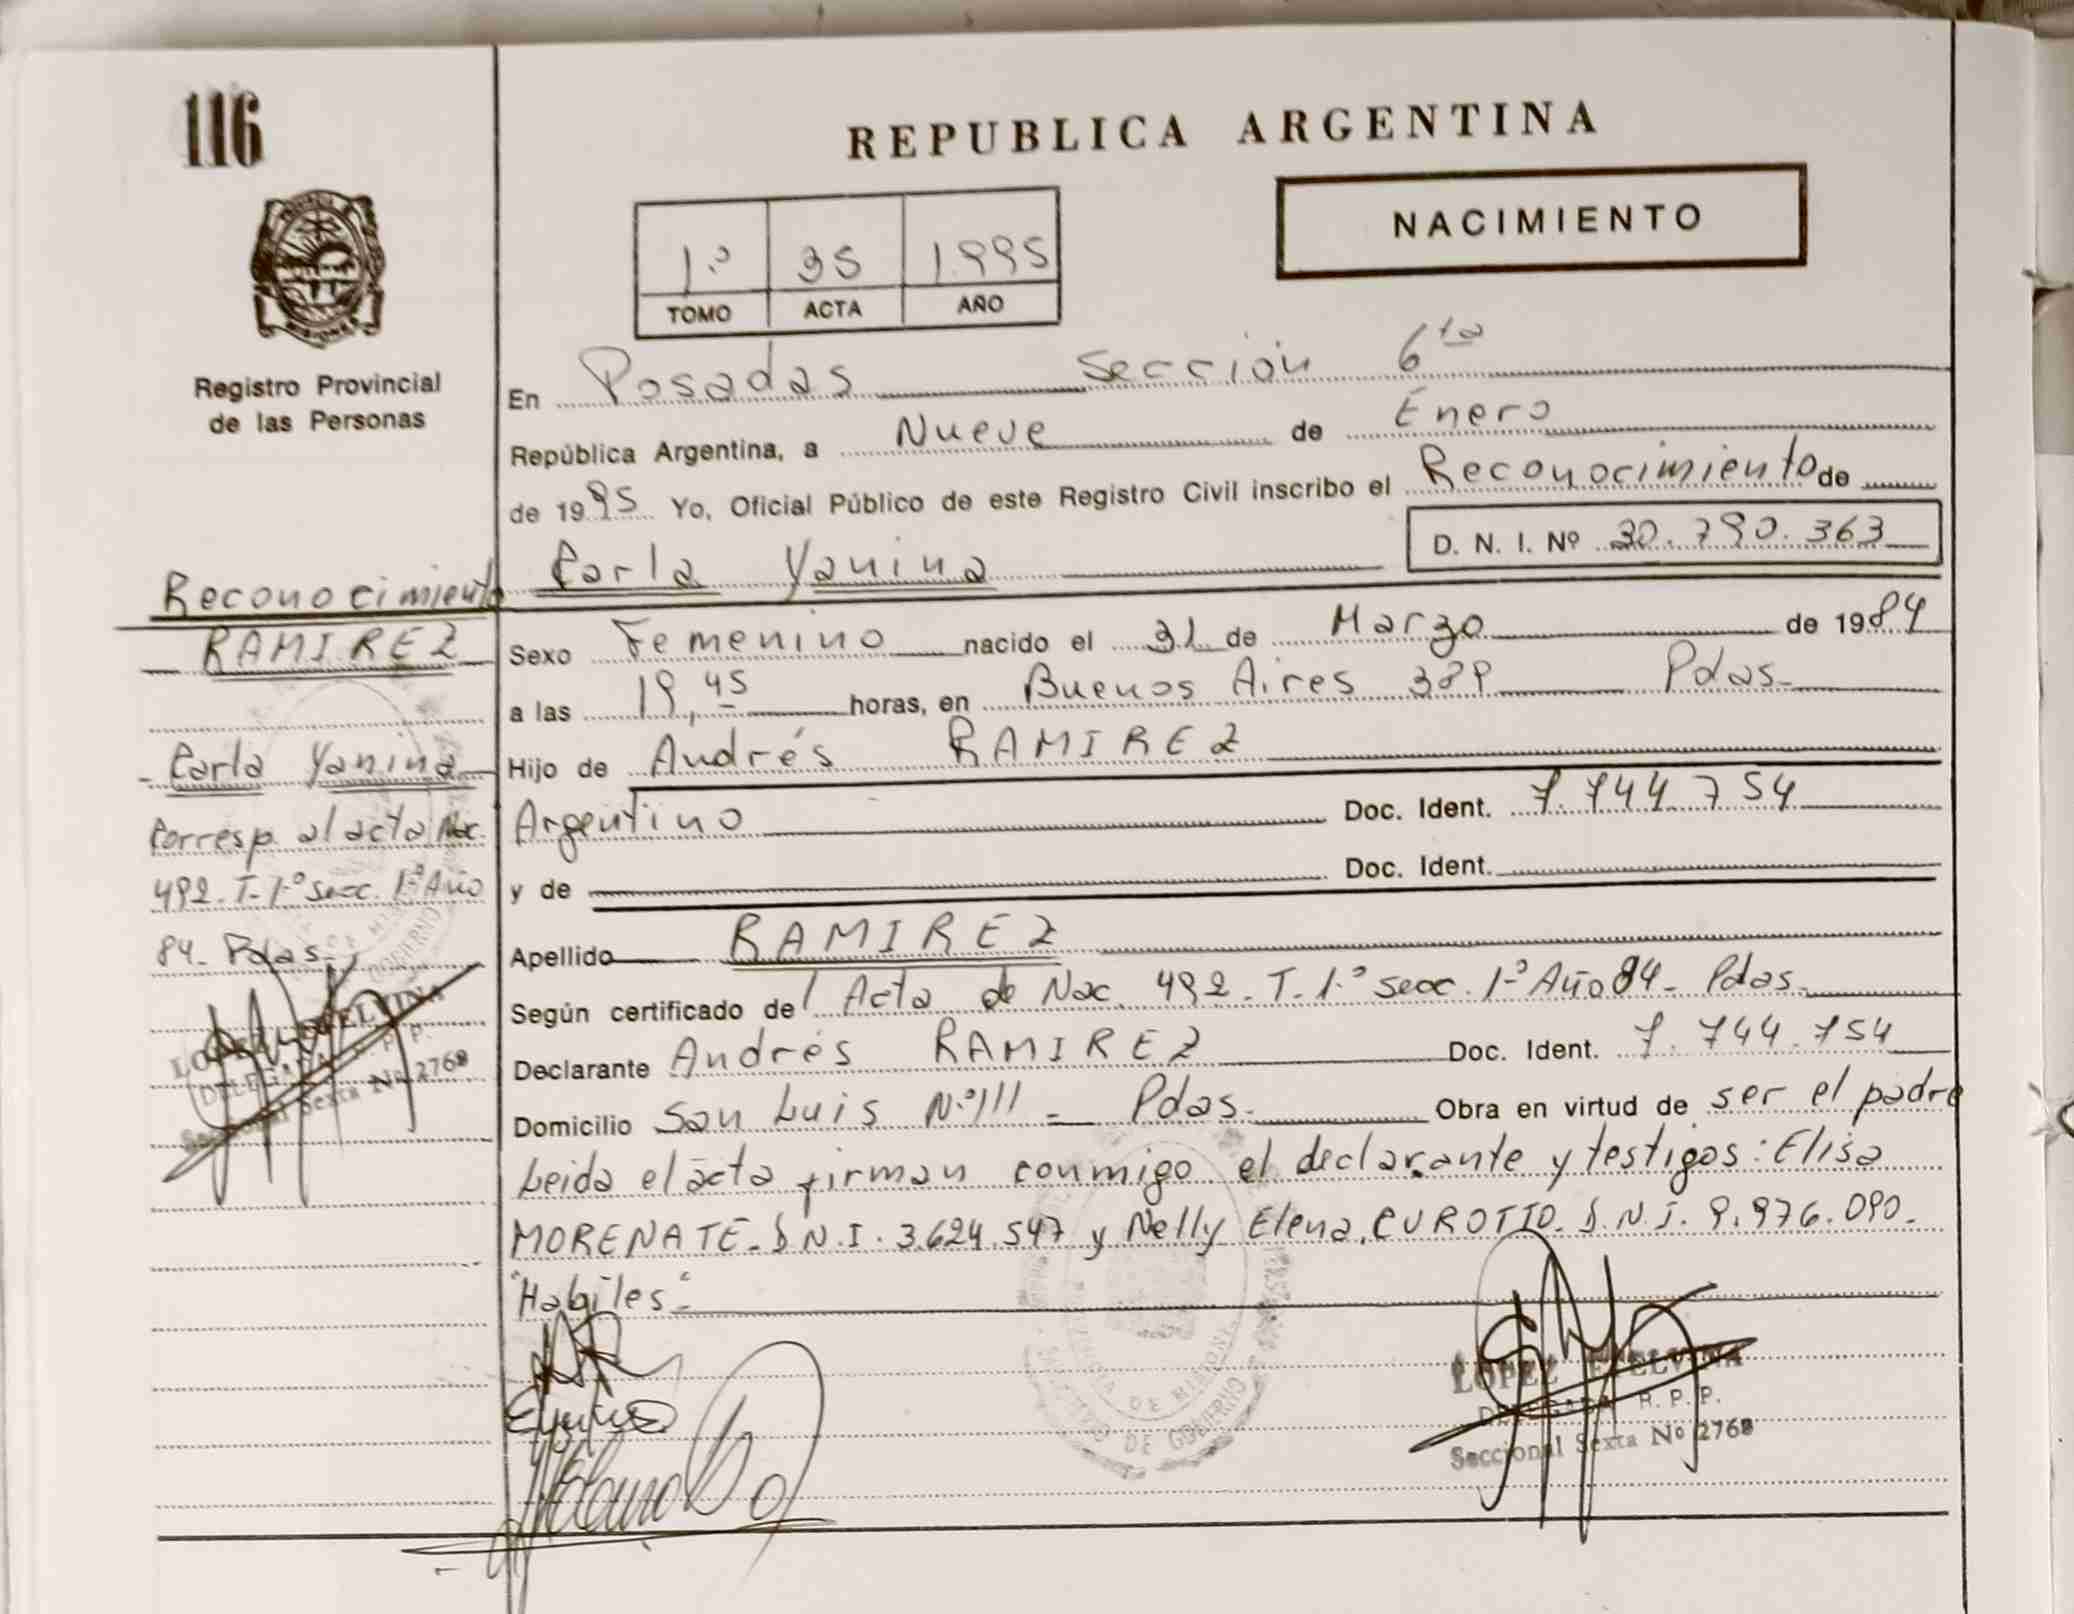 116
REPUBLICA ARGENTINA
NACIMIENTO
1.º 35 1.995
TOMO ACTA AÑO
Registro Provincial
de las Personas
En Posadas Sección 6ta
República Argentina, a Nueve de Enero
de 1995 Yo, Oficial Público de este Registro Civil inscribo el Reconocimiento de
D. N. I. Nº 30.790.363
Carla Yanina
Sexo Femenino nacido el 31 de Marzo de 1984
a las 19,45 horas, en Buenos Aires 389 Pdas.
Hijo de Andrés RAMIREZ
Argentino Doc. Ident. 7.744.754
y de Doc. Ident.
Apellido RAMIREZ
Según certificado de Acta de Nac. 492. T. 1.º secc. 1.º Año 84. Pdas.
Declarante Andrés RAMIREZ Doc. Ident. 7.744.754
Domicilio San Luis N.º 111 - Pdas. Obra en virtud de ser el padre
Leida el acta firman conmigo el declarante y testigos: Elisa
MORENATE. D.N.I. 3.624.547 y Nelly Elena CUROTTO. D.N.I. 9.976.090.
"Habiles"
Reconocimiento
RAMIREZ
Carla Yanina
Corresp. al acta Nac.
492. T. 1.º secc. 1.º Año
84. Pdas.
DELEGADA R. P. P.
Seccional Sexta Nº 2768
LOPEZ ETELVINA
DELEGADA R. P. P.
Seccional Sexta Nº 2768